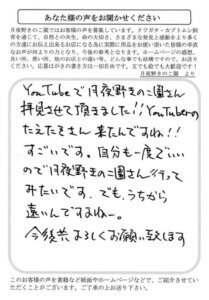 あなたの声をお聞かせください
月夜野きのこ園ではお客様の声を募集しています。クワガタ・カブトムシ飼
育を通じて、自然との共生、命の大切さ、さまざまな発見と感動をより多く
の方達にお伝え出来るお店になる為に実際に用品をお使い頂いた皆様の率直
なお声が何よりの力となり、今後の参考となります。ホームページの感想、
良い所、悪い所、他のお店との違い等、どんな事でも結構ですので、お送り
ください。応募はがきの書き方は一切自由です。文でも絵でも大歓迎です！
月夜野きのこ園 より
YouTubeで月夜野きのこ園さん
拝見させて頂きました!!YouTuberの
たえたさん来たんですね!!
すごいです。自分も一度でいい
ので月夜野きのこ園さんに行って
みたいです。でも、うちから
遠いんですよねー。
今後共よろしくお願い致します
このお客様の声を書籍など紙面やホームページなどで、ご紹介させてい
ただくことがございます。ご了承の上お送り下さい。